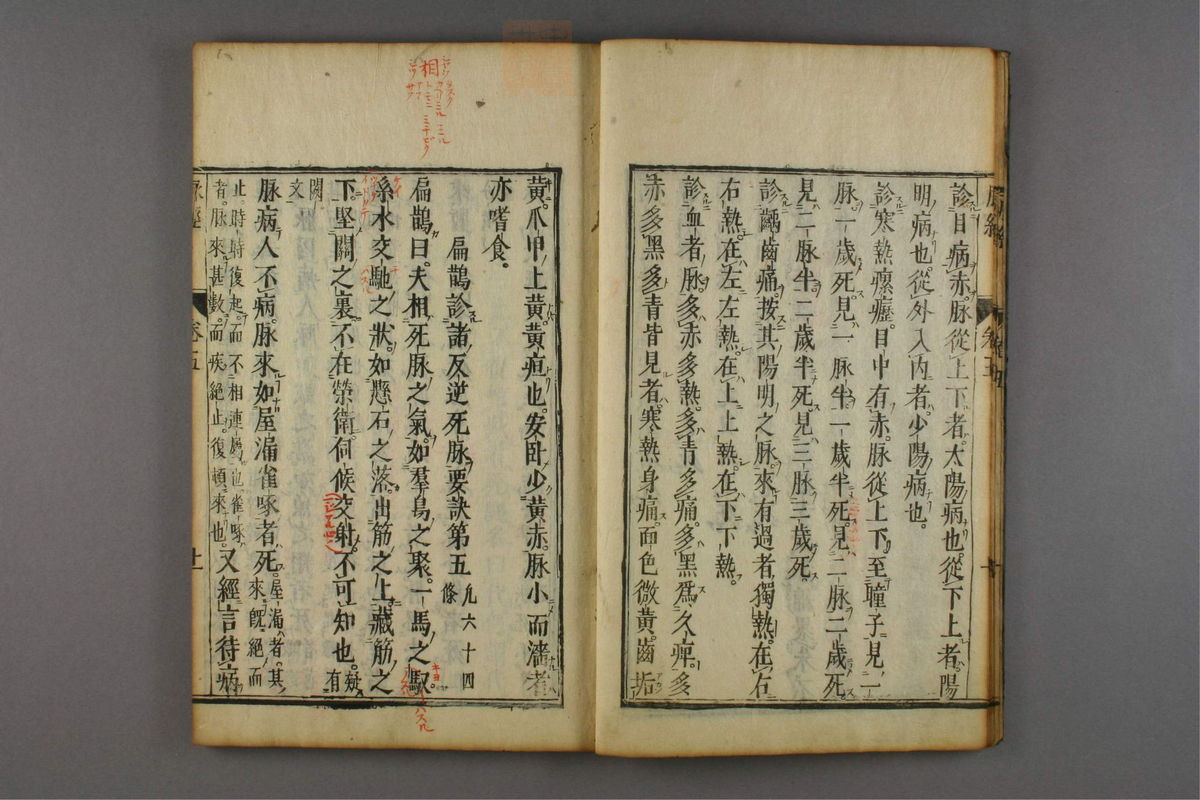 診目病赤脉從上下者。太陽病也。從下上者。陽
明病也。從外入内者。少陽病也。
診寒熱瘰癧。目中有赤脉。從上下至瞳子。見一
脉。一歲死。見一脉半。一歲半死。見二脉。二歲死。
見二脉半。二歲半死。見三脉。三歲死。
診齲齒痛。按其陽明之脉。來有過者獨熱。在右
右熱。在左左熱。在上上熱。在下下熱。
診血者脉。多赤多熱。多青多痛。多黑爲久痺。多
赤多黑多青皆見者。寒熱身痛。面色微黄。齒垢
黄。爪甲上黄。黄疸也。安卧少黄赤。脉小而濇者
亦嗜食。
扁鵲診諸反逆死脉要訣第五 凡六十四條
扁鵲曰。夫相死脉之氣。如羣鳥之聚。一馬之馭。
系水交馳之狀。如懸石之落。出筋之上。藏筋之
下。堅關之裏。不在榮衛。伺候交射。不可知也。疑有
闕文
脉病人不病。脉來如屋漏雀啄者死。屋漏者。其來既絕而
止。時時復起。而不相連屬也。雀啄者。脉來甚數。而疾絕止。復頓來也。又經言。得病
脉經
卷五
十一
相